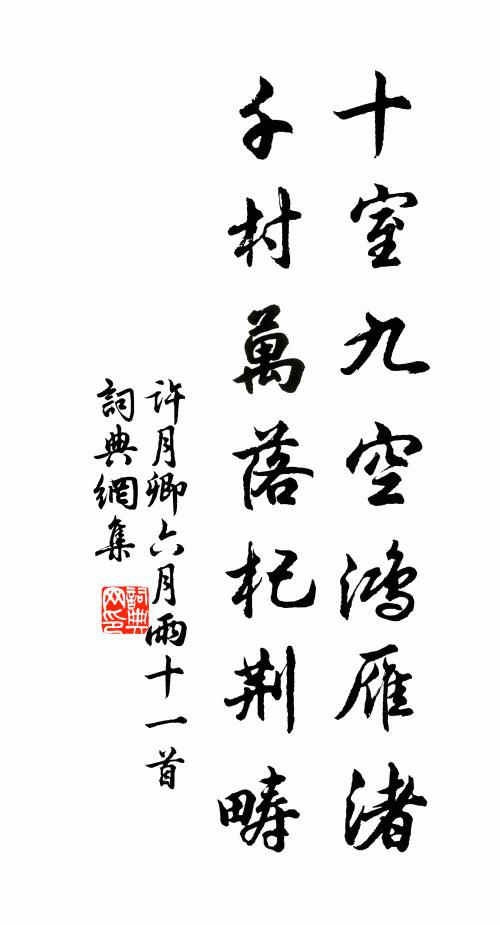 十室九空鸿雁渚
千村萬落杞荆疇
许月卿六月雨十一首
詞典網集
詞典网印